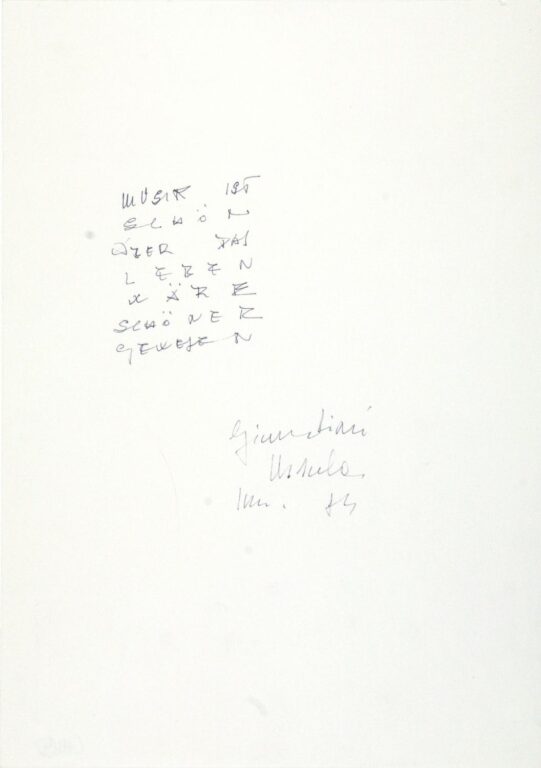 MUSIK IST
SCHÖN
ABER DAS
LEBEN
WÄRE
SCHÖNER
GEWESEN
Ursula